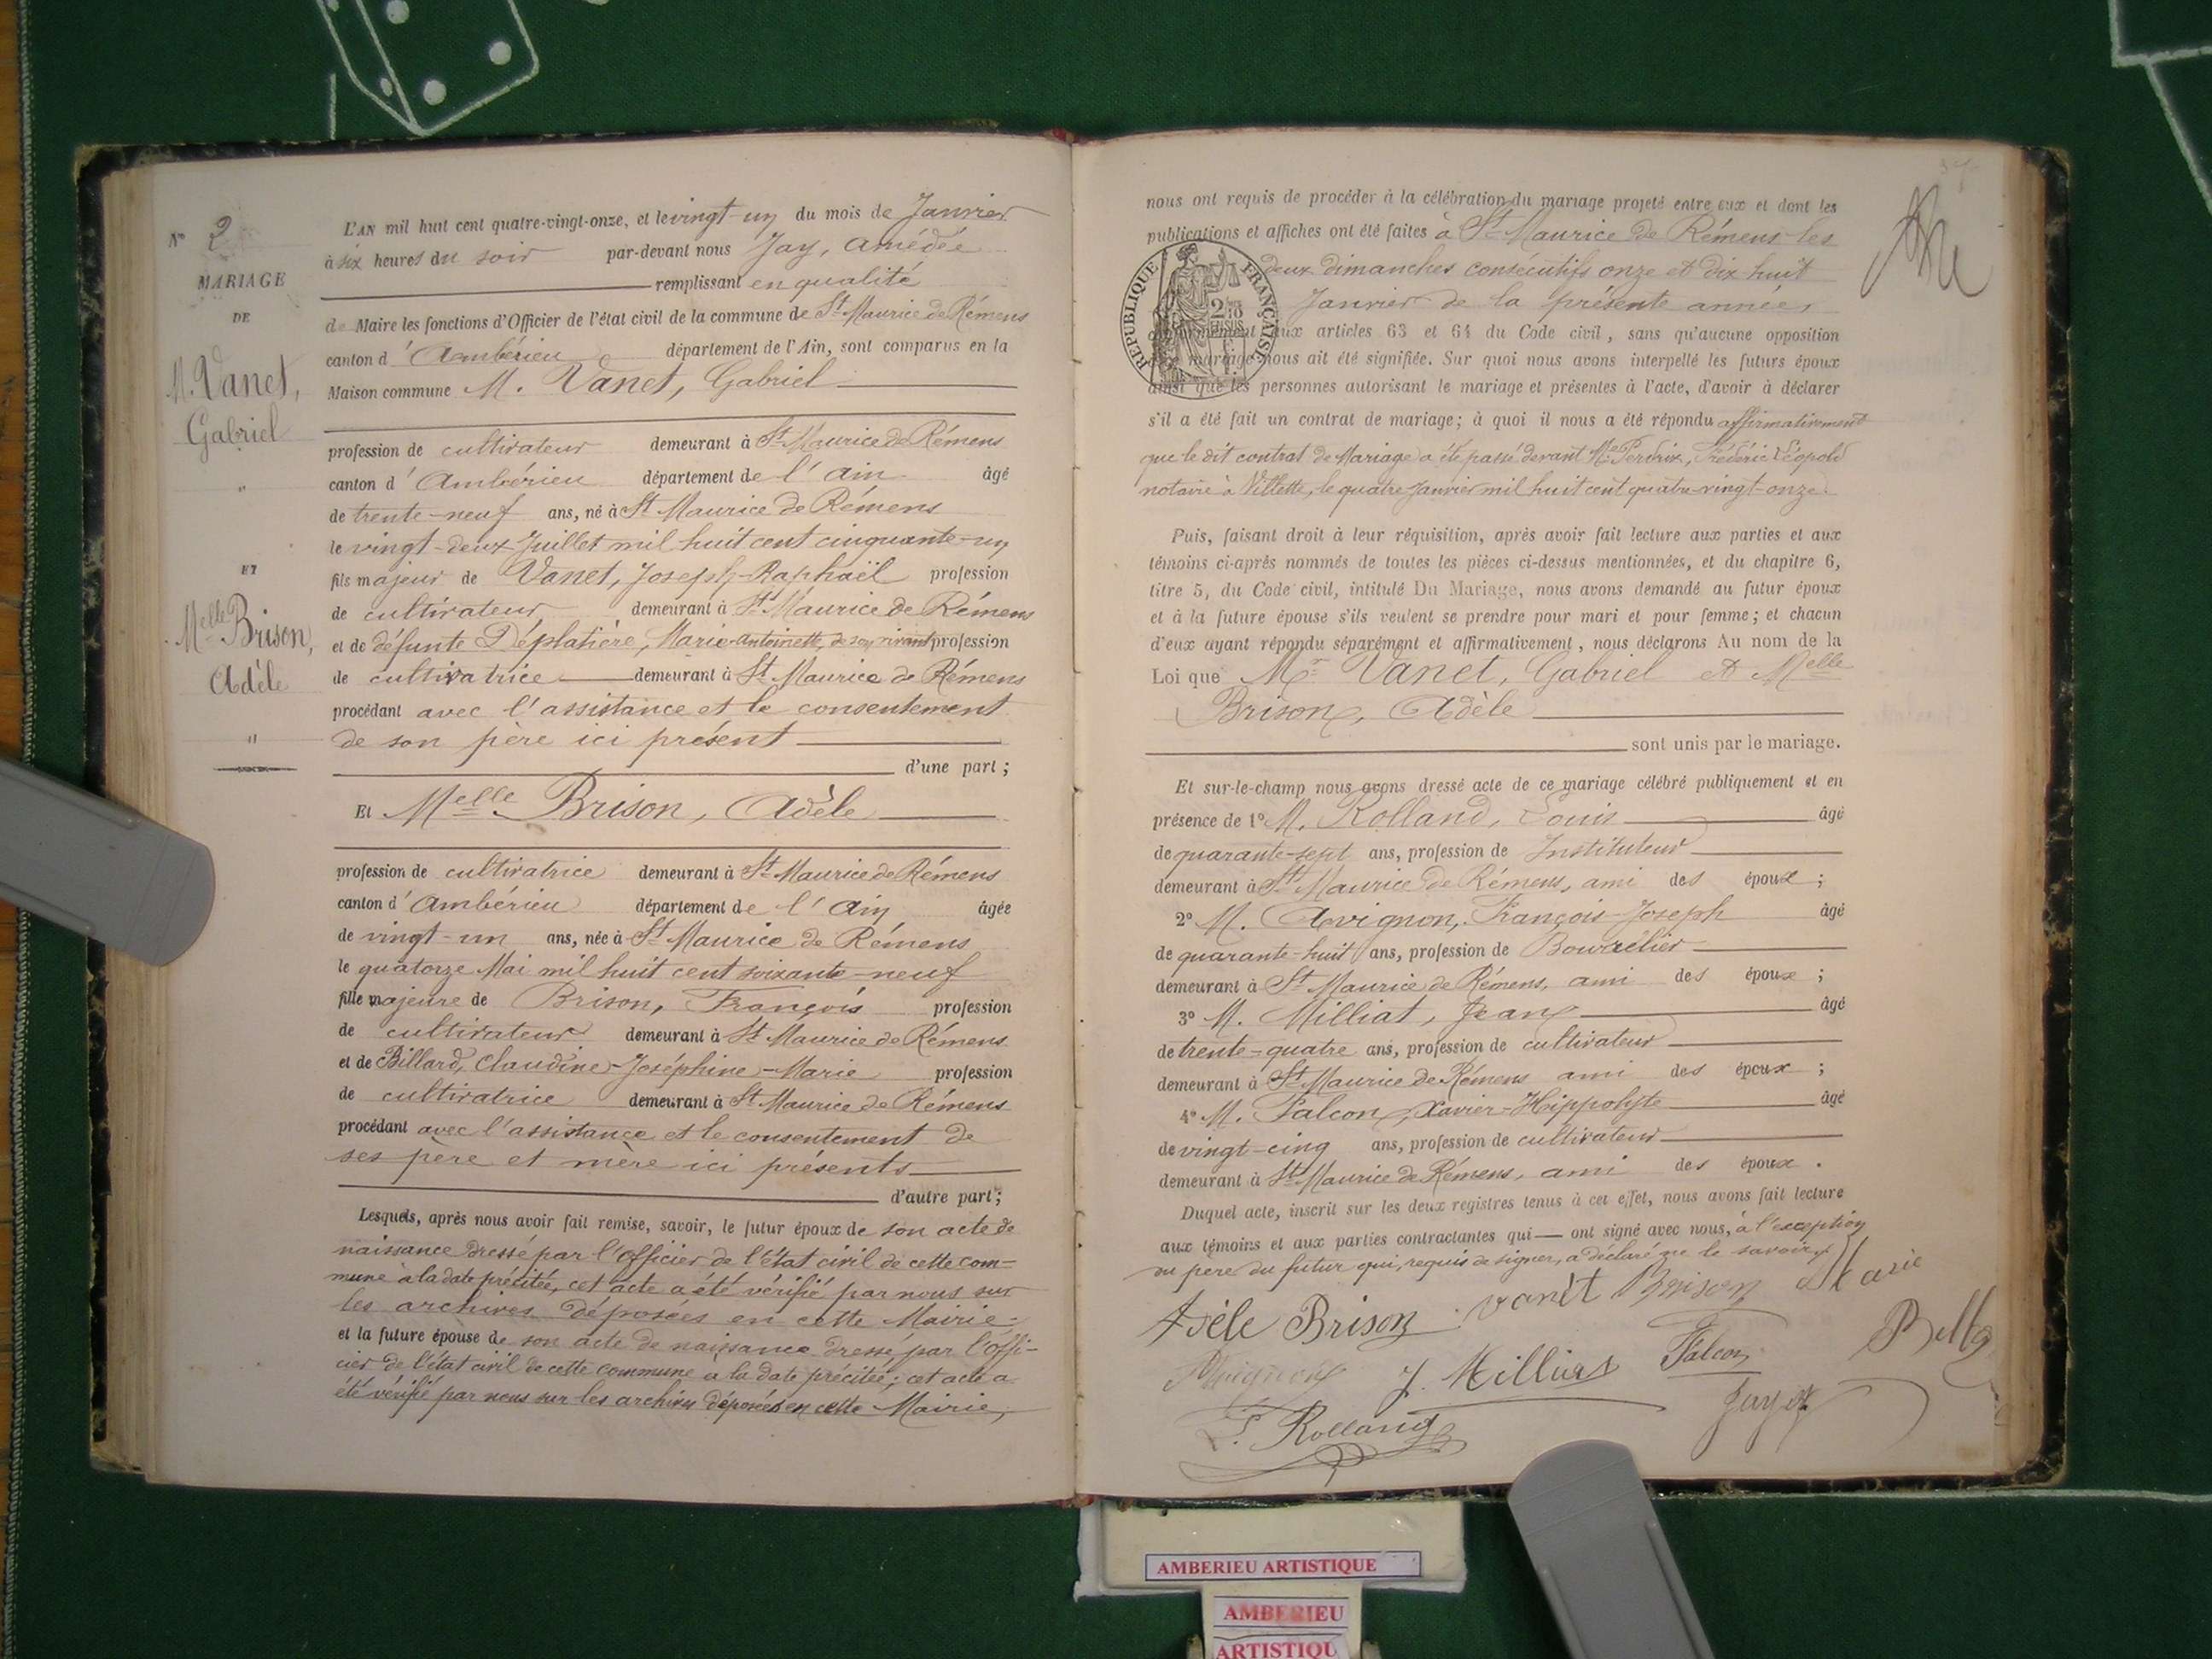 N° 2
MARIAGE
DE
M. Vanet,
Gabriel
"
ET
Melle Brison,
Adèle
"
L'AN mil huit cent quatre-vingt-onze, et le vingt-un du mois de Janvier
à six heures du soir par-devant nous Jay, Amédée
remplissant en qualité
de Maire les fonctions d'Officier de l'état civil de la commune de St Maurice de Rémens
canton d'Ambérieu département de l'Ain, sont comparus en la
Maison commune M. Vanet, Gabriel
profession de cultivateur demeurant à St Maurice de Rémens
canton d'Ambérieu département de l'Ain âgé
de trente-neuf ans, né à St Maurice de Rémens
le vingt-deux Juillet mil huit cent cinquante-un
fils majeur de Vanet, Joseph-Raphaël profession
de cultivateur demeurant à St Maurice de Rémens
et de défunte Déplatière, Marie-Antoinette, de son vivant profession
de cultivatrice demeurant à St Maurice de Rémens
procédant avec l'assistance et le consentement
de son père ici présent
d'une part;
Et Melle Brison, Adèle
profession de cultivatrice demeurant à St Maurice de Rémens
canton d'Ambérieu département de l'Ain âgée
de vingt-un ans, née à St Maurice de Rémens
le quatorze Mai mil huit cent soixante-neuf
fille majeure de Brison, François profession
de cultivateur demeurant à St Maurice de Rémens
et de Billard, Claudine-Joséphine-Marie profession
de cultivatrice demeurant à St Maurice de Rémens
procédant avec l'assistance et le consentement de
ses père et mère ici présents
d'autre part;
Lesquels, après nous avoir fait remise, savoir, le futur époux de son acte de
naissance dressé par l'officier de l'état civil de cette com=
mune à la date précitée, cet acte a été vérifié par nous sur
les archives déposées en cette Mairie=
et la future épouse de son acte de naissance dressé par l'offi-
cier de l'état civil de cette commune à la date précitée; cet acte a
été vérifié par nous sur les archives déposées en cette Mairie,
nous ont requis de procéder à la célébration du mariage projeté entre eux et dont les
publications et affiches ont été faites à St Maurice de Rémens les
deux dimanches consécutifs onze et dix huit
Janvier de la présente année,
conformément aux articles 63 et 64 du Code civil, sans qu'aucune opposition
mariage nous ait été signifiée. Sur quoi nous avons interpellé les futurs époux
ainsi que les personnes autorisant le mariage et présentes à l'acte, d'avoir à déclarer
s'il a été fait un contrat de mariage; à quoi il nous a été répondu affirmativement
que le dit contrat de Mariage a été passé devant Me Perdrix, Frédéric Léopold
notaire à Villette, le quatre Janvier mil huit cent quatre-vingt-onze.
RÉPUBLIQUE FRANÇAISE
Puis, faisant droit à leur réquisition, après avoir fait lecture aux parties et aux
témoins ci-après nommés de toutes les pièces ci-dessus mentionnées, et du chapitre 6,
titre 5, du Code civil, intitulé Du Mariage, nous avons demandé au futur époux
et à la future épouse s'ils veulent se prendre pour mari et pour femme; et chacun
d'eux ayant répondu séparément et affirmativement, nous déclarons Au nom de la
Loi que Mr Vanet, Gabriel et Melle
Brison, Adèle
sont unis par le mariage.
Et sur-le-champ nous avons dressé acte de ce mariage célébré publiquement et en
présence de 1° M. Rolland, Louis âgé
de quarante-sept ans, profession de Instituteur
demeurant à St Maurice de Rémens, ami des époux;
2° M. Avignon, François-Joseph âgé
de quarante-huit ans, profession de Bourrelier
demeurant à St Maurice de Rémens, ami des époux;
3° M. Milliat, Jean âgé
de trente-quatre ans, profession de cultivateur
demeurant à St Maurice de Rémens ami des époux;
4° M. Falcon, Xavier-Hippolyte âgé
de vingt-cinq ans, profession de cultivateur
demeurant à St Maurice de Rémens, ami des époux.
Duquel acte, inscrit sur les deux registres tenus à cet effet, nous avons fait lecture
aux témoins et aux parties contractantes qui ont signé avec nous, à l'exception
du père du futur qui, requis de signer, a déclaré ne le savoir
Adèle Brison vanet Brison Marie
Avignon J. Milliat Falcon
L. Rolland Jay
AMBERIEU ARTISTIQUE
AMBERIEU
ARTISTIQU